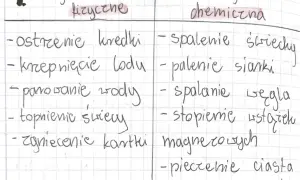 fizyczne
- ostrzenie kredki
- krzepnięcie lodu
- parowanie wody
- topnienie świecy
- zgniecenie kartki
chemiczna
- spalenie świecky
- palenie sianki
- spalanie węgla
- stopienie wstążek
magnezowych
- pieczenie ciasta